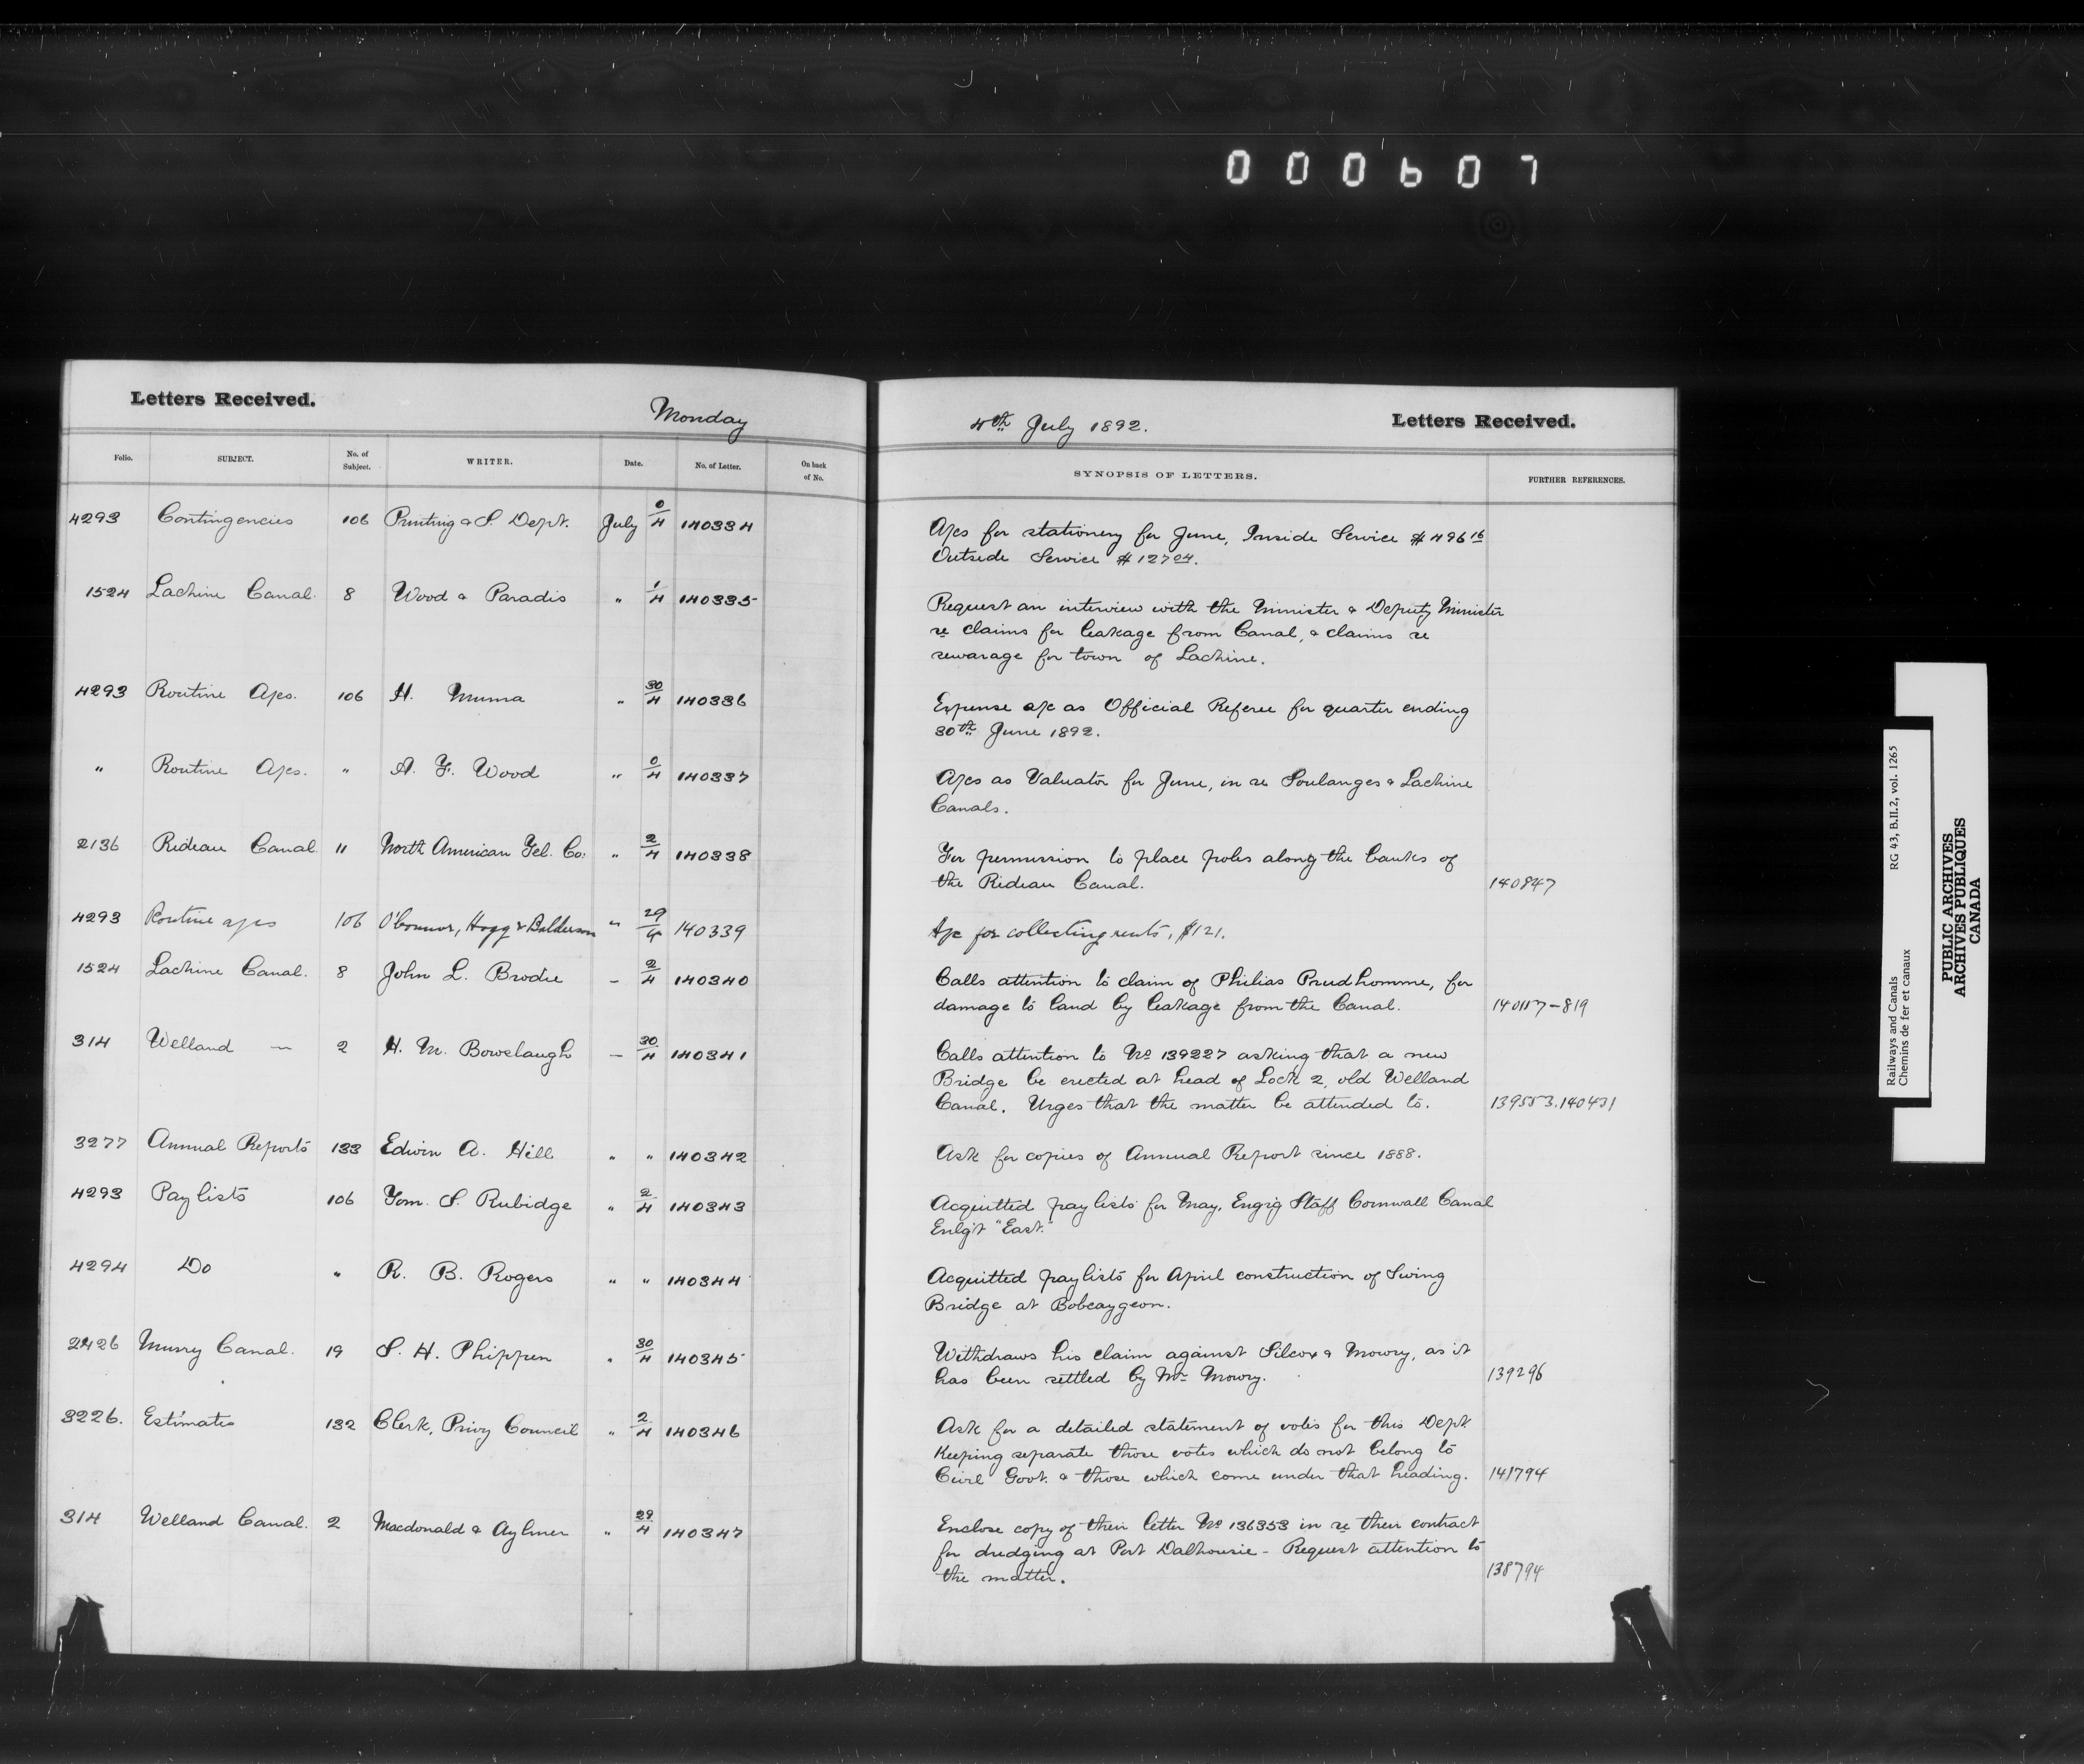 000607
Letters Received.
Monday
4th July 1892.
Letters Received.
Folio. SUBJECT. No. of Subject. WRITER. Date. No. of Letter. On back of No. SYNOPSIS OF LETTERS. FURTHER REFERENCES.
4293 Contingencies 106 Printing & S. Dept. July 0/4 140334
A/cs for stationery for June, Inside Service $496 16
Outside Service $127 04.
1524 Lachine Canal. 8 Wood & Paradis " 1/4 140335
Request an interview with the Minister & Deputy Minister
re claims for leakage from Canal, & claims re
sewarage for town of Lachine.
4293 Routine A/cs. 106 H. Muma " 30/4 140336
Expense a/c as Official Referee for quarter ending
30th June 1892.
" Routine A/cs. " A. F. Wood " 0/4 140337
A/cs as Valuator for June, in re Soulanges & Lachine
Canals.
2136 Rideau Canal. 11 North American Tel. Co. " 2/4 140338
For permission to place poles along the banks of
the Rideau Canal. 140847
4293 Routine a/cs 106 O'Connor, Hogg & Balderson " 29/4 140339
A/c for collecting rents, $121.
1524 Lachine Canal. 8 John L. Brodie – 2/4 140340
Calls attention to claim of Philias Prudhomme, for
damage to land by leakage from the Canal. 140117-819
314 Welland — 2 H. M. Bowslaugh — 30/4 140341
Calls attention to No 139227 asking that a new
Bridge be erected at head of Lock 2, old Welland
Canal. Urges that the matter be attended to. 139553.140431
3277 Annual Reports 133 Edwin A. Hill " " 140342
Ask for copies of Annual Report since 1888.
4293 Pay lists 106 Tom. S. Rubidge " 2/4 140343
Acquitted pay lists for May, Engrg Staff Cornwall Canal
Enlg't "East."
4294 Do " R. B. Rogers " " 140344
Acquitted pay lists for April construction of Swing
Bridge at Bobcaygeon.
2426 Murry Canal. 19 S. H. Phippen " 30/4 140345
Withdraws his claim against Silcox & Mowry, as it
has been settled by Mr Mowry. 139296
3226. Estimates 132 Clerk, Privy Council " 2/4 140346
Ask for a detailed statement of votes for this Dept.
Keeping separate those votes which do not belong to
Civil Govt. & those which come under that heading. 141794
314 Welland Canal. 2 Macdonald & Aylmer " 29/4 140347
Enclose copy of their letter No 136353 in re their contract
for dredging at Port Dalhousie - Request attention to
the matter. 138794
Railways and Canals RG 43, B.II.2, vol. 1265
Chemins de fer et canaux
PUBLIC ARCHIVES
ARCHIVES PUBLIQUES
CANADA